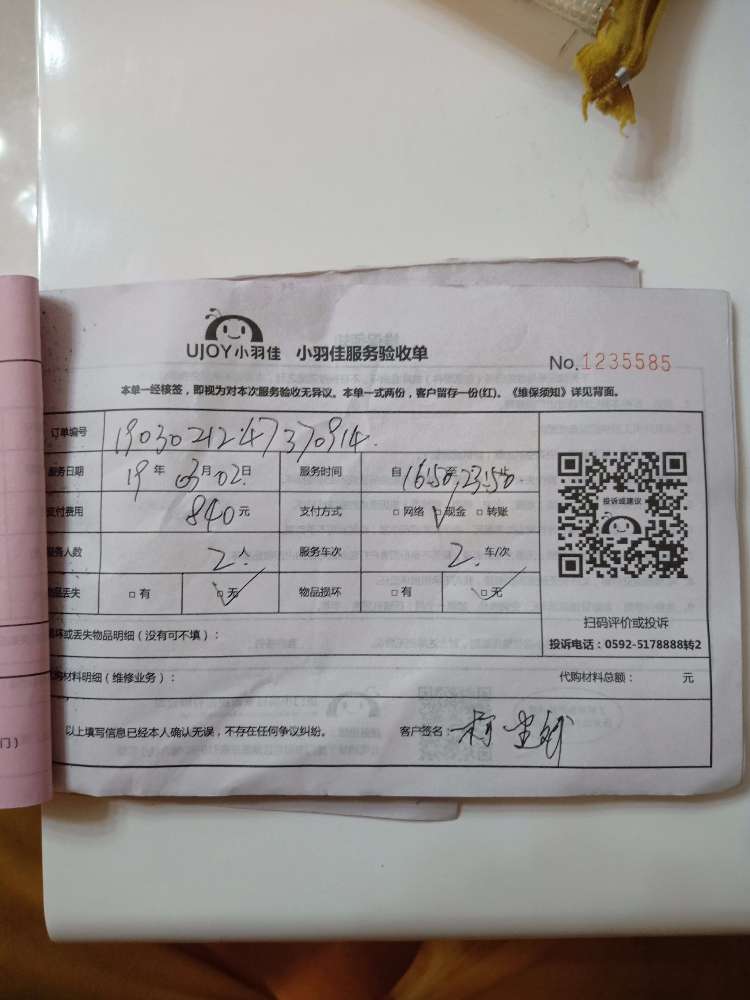 UJOY小羽佳 小羽佳服务验收单
No.1235585
本单一经核签，即视为对本次服务验收无异议。本单一式两份，客户留存一份(红)。《维保须知》详见背面。
订单编号 1903021247370914.
服务日期 19年 03月02日 服务时间 自16:50至23:50止
支付费用 840元 支付方式 □网络 □现金 □转账
服务人数 2人 服务车次 2.车/次
物品丢失 □有 □无 物品损坏 □有 □无
投诉或建议
扫码评价或投诉
投诉电话：0592-5178888转2
坏或丢失物品明细（没有可不填）：
代购材料明细（维修业务）： 代购材料总额： 元
以上填写信息已经本人确认无误，不存在任何争议纠纷。 客户签名：
门）